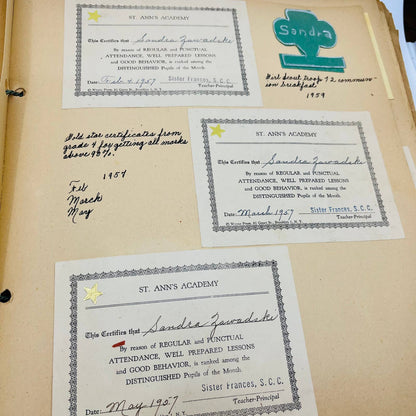 ST. ANN'S ACADEMY
This Certifies that Sandra Zawadske
By reason of REGULAR and PUNCTUAL
ATTENDANCE, WELL PREPARED LESSONS
and GOOD BEHAVIOR, is ranked among the
DISTINGUISHED Pupils of the Month.
Date: Feb 4 1957 Sister Frances, S.C.C.
Teacher-Principal
Sandra
Girl Scout troop 72 communion
breakfast
1959
Gold star certificates from
grade 4 for getting all marks
above 93%.
1957
Feb
March
May
ST. ANN'S ACADEMY
This Certifies that Sandra Zawadske
By reason of REGULAR and PUNCTUAL
ATTENDANCE, WELL PREPARED LESSONS
and GOOD BEHAVIOR, is ranked among the
DISTINGUISHED Pupils of the Month.
Date: March 1957 Sister Frances, S.C.C.
Teacher-Principal
ST. ANN'S ACADEMY
This Certifies that Sandra Zawadske
By reason of REGULAR and PUNCTUAL
ATTENDANCE, WELL PREPARED LESSONS
and GOOD BEHAVIOR, is ranked among the
DISTINGUISHED Pupils of the Month.
Sister Frances, S.C.C.
Date: May 1957 Teacher-Principal